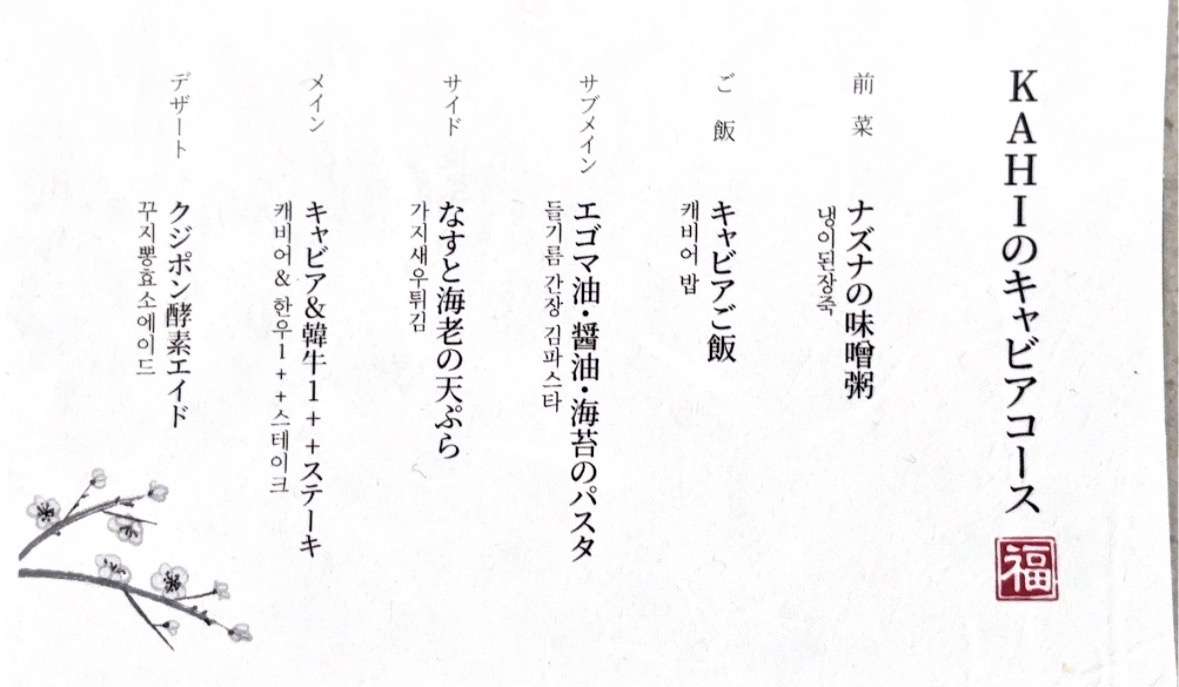 KAHIのキャビアコース
福
前菜
ナズナの味噌粥
냉이된장죽
ご飯
キャビアご飯
캐비어 밥
サブメイン
エゴマ油・醤油・海苔のパスタ
들기름 간장 김파스타
サイド
なすと海老の天ぷら
가지새우튀김
メイン
キャビア&韓牛1++ステーキ
캐비어& 한우1++스테이크
デザート
クジポン酵素エイド
꾸지뽕효소에이드